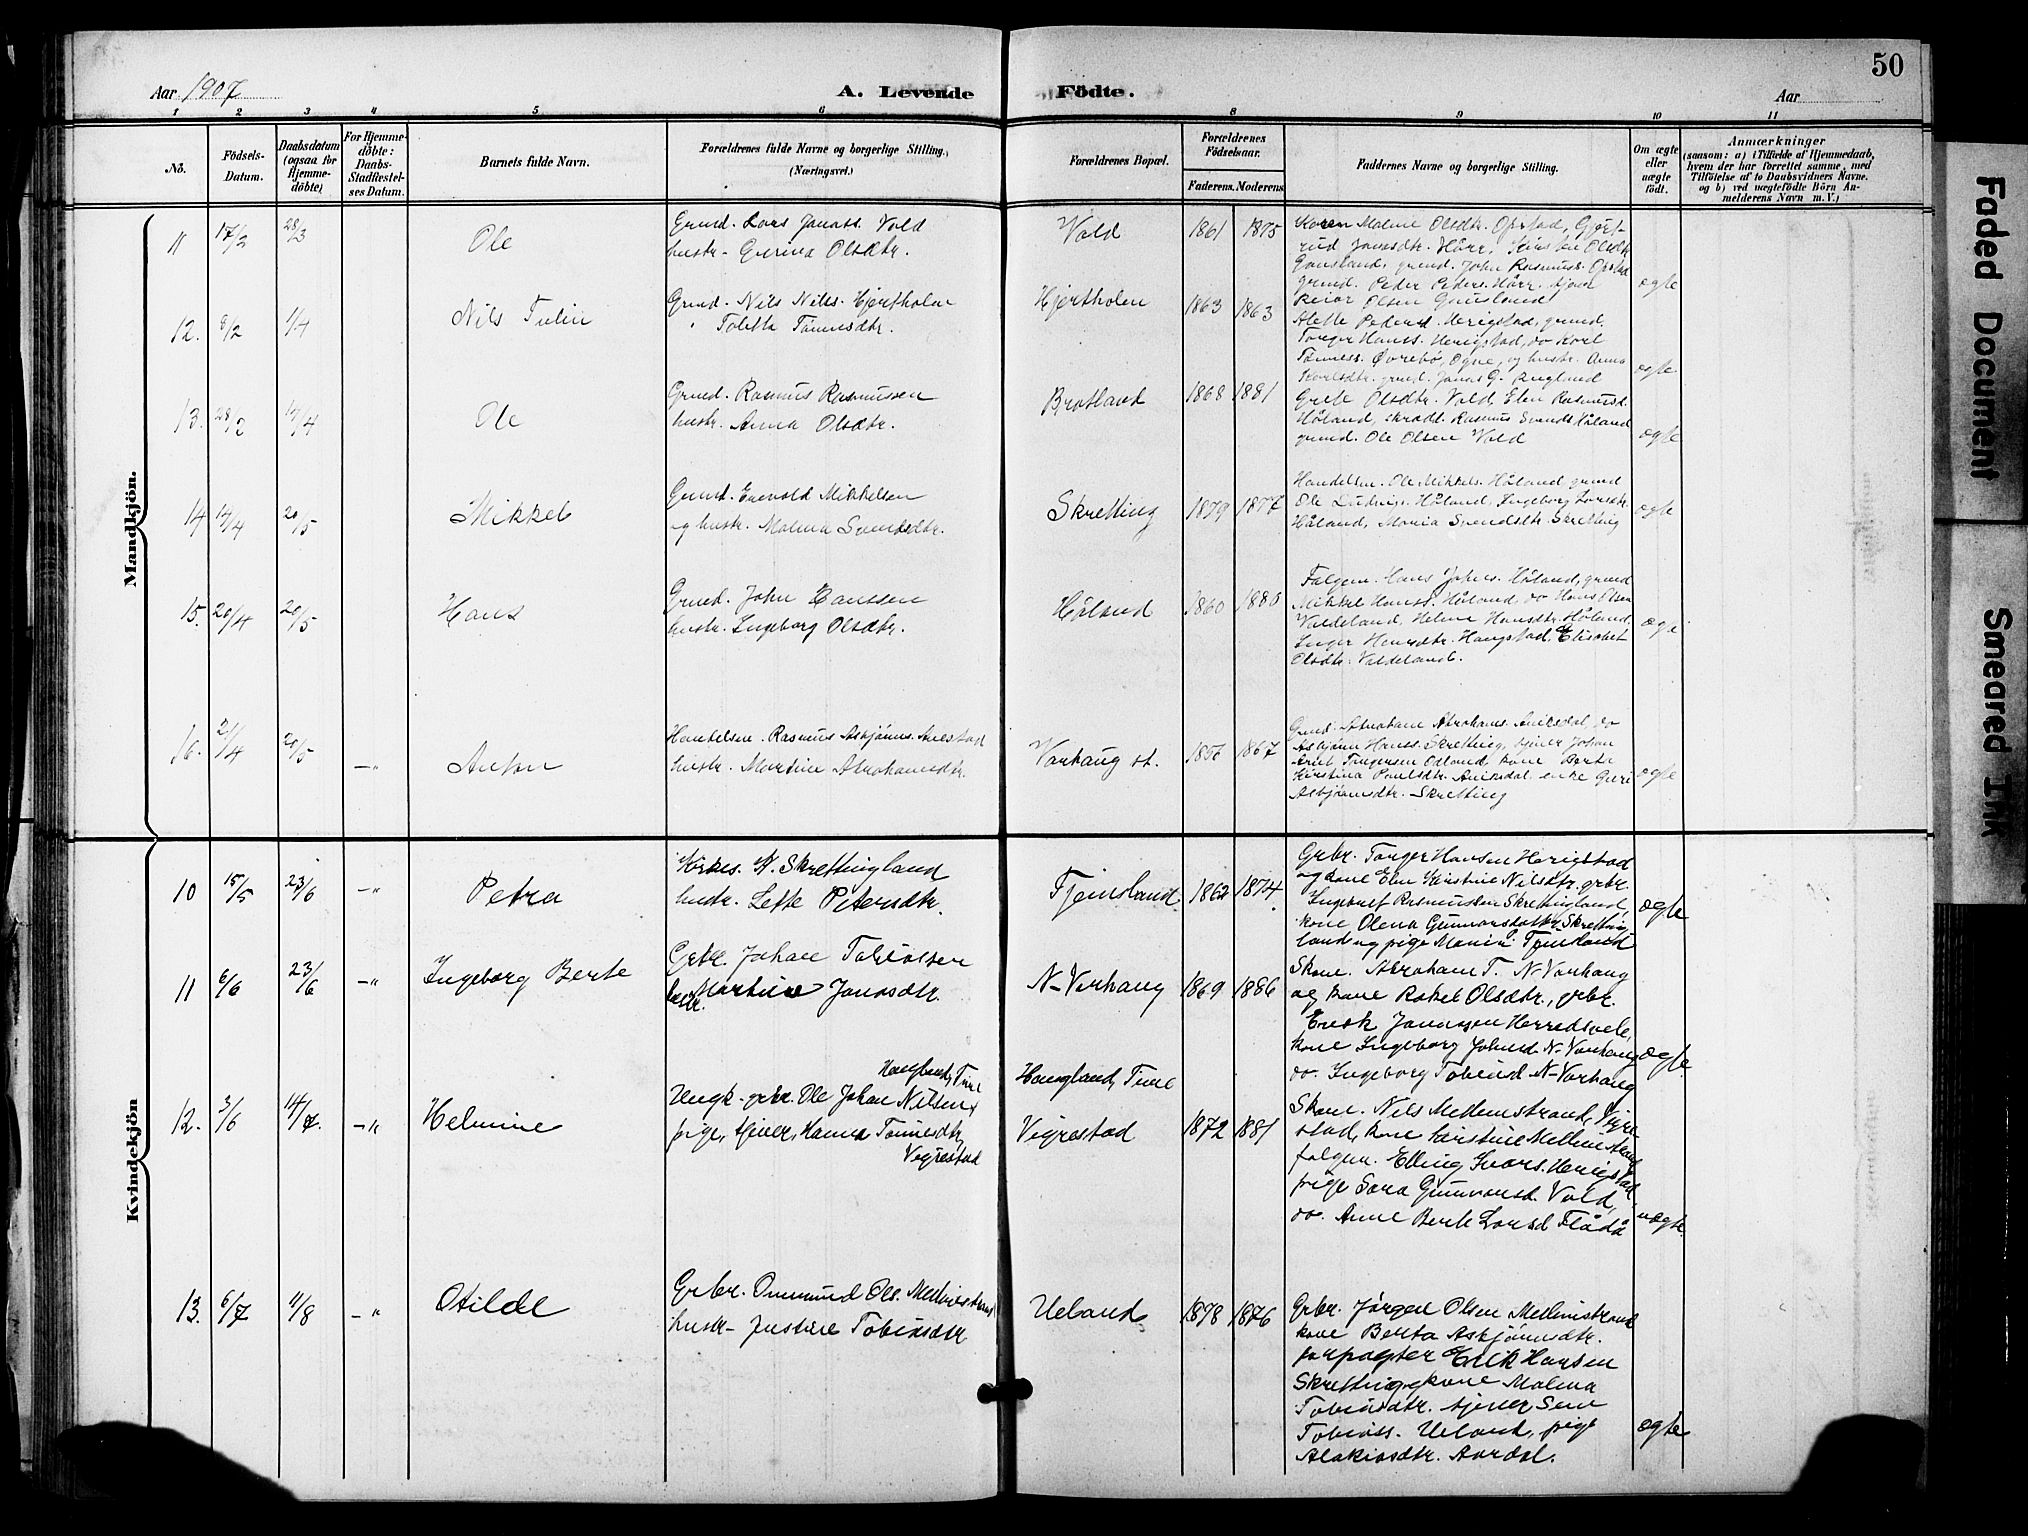 50
Aar 1907
A. Levende
Födte.
Aar
1 2 3 4 5 6 8 9 10 11
No.
Födsels-
Datum.
Daabsdatum
(ogsaa for
Hjemme-
döbte)
For Hjemme-
döbte:
Daabs-
Stadfæstel-
ses Datum.
Barnets fulde Navn.
Forældrenes fulde Navne og borgerlige Stilling.
(Næringsvei.)
Forældrenes Bopæl.
Forældrenes
Födselsaar.
Faderens. Moderens.
Faddernes Navne og borgerlige Stilling.
Om ægte
eller
uægte
födt.
Anmærkninger
(saasom: a) i Tilfælde af Hjemmedaab,
hvem der har forrettet samme, med
Tilföielse af to Daabsvidners Navne.
og b) ved uægtefödte Börn An-
melderens Navn m. V.)
Mandkjön.
11 17/2 28/3 Ole
Grmd. Lars Jonass. Vold
hustr. Gurina Olsdtr.
Vold 1861 1875
Karen Malene Olsdtr. Opstad, Gjert-
rud Jonasdtr. Hårr, Olsdtr.
Gausland, grmd. John Rasmuss. Opstad
grmd. Peder Peders. Hårr,
Olsen Gausland
ægte
12. 8/2 1/4 Nils Tulin
Grmd. Nils Nils. Hjertholen
" Toletta Tönnesdtr.
Hjertholen 1863 1863
Alette Pedersd. Herigstad, grmd.
Torger Hanss. Herigstad, do Karl
Tönness. Øvrebö, Ogne, og hustr. Anna
Karlsdtr. grmd. Jonas G.
ægte
13. 28/2 Ole
Grmd. Rasmus Rasmussen
hustr. Anna Olsdtr.
Brotland 1868 1881
Grete Olsdtr. Vold, Elen Rasmusd.
Håland, skrædd. Rasmus Svends. Håland
grmd. Ole Olsen Vold
ægte
14 14/4 20/5 Mikkel
Grmd. Enevold Mikkelsen
og hustr. Malena Svendsdtr.
Skretting 1879 1877
Handelsm. Ole Mikkels. Håland, grmd
Ole Ludvigs. Håland, Ingeborg Larsdtr.
Håland, Maria Svendsdtr. Skretting
ægte
15. 20/4 20/5 Hans
Grmd. John Hanssen
hustr. Ingeborg Olsdtr.
Håland 1860 1880
Falgem. Hans Johns. Håland, grmd
Mikkel Hanss. Håland, do Hans Olsen
Valdeland, Helene Hansdtr. Håland,
Inger Hansdtr. Haugstad, Elisabet
Olsdtr. Valdeland.
ægte
16. 21/4 20/5 -"- Anton
Handelsm. Rasmus Asbjörns. Årestad
hustr. Martine Abrahamsdtr.
Varhaug st. 1856 1867
Grmd. Abraham Abrahams. Aniksdal, do
Asbjörn Hanss. Skretting, tjener Johan
Torgersen Odland, kone Berte
Kirstina Paulsdtr. Aniksdal, enke Guri
Asbjörnsdtr. Skretting
ægte
Kvindekjön
10 15/5 23/6 -"- Petra
Kirkes. N. Skrettingland
hustr. Lette Petersdtr.
Fjermsland 1862 1874
Grbr. Torger Hansen Herigstad
og kone Elen Kirstine Nilsdtr. grbr.
Ingebret Rasmussen Skrettingland,
kone Olena Gunvorsdatter Skretting-
land og pige Fjermsland
ægte
11 6/6 23/6 -"- Ingeborg Berte
Grbr. Johan Tobiassen
hustr. Martine Jonasdtr.
N-Varhaug 1869 1886
Skom. Abraham T. N-Varhaug
og kone Rakel Olsdtr., grbr.
Enok Jonassen Herredsvele,
kone Ingeborg Johnsd. N-Varhaug
do. Ingeborg Tobiasd N-Varhaug
ægte
12. 3/6 14/7. -"- Helmine
Haugland, Time
Ungk. grbr. Ole Johan Nilsen
pige, tjener, Hanna Tönnesdtr,
Vigrestad
Haugland, Time
Vigrestad 1872 1881
Skom. Nils Mellemstrand, Vigre-
stad, kone Kirstine Mellemstrand
falgem. Elling Ivars. Herigstad
pige Sara Gunvorsd. Vold,
do. Anne Berte Larsd Flådå
uægte.
13. 6/7 11/8 -"- Otilde
Grbr. Ommund Ols. Mellemstrand
hustr. Justine Tobiasdtr
Ueland 1878 1876
Grbr. Jørgen Olsen Mellemstrand
kone Berta Asbjörnsdtr.
forpagter Erik Hansen
Skretting, kone Malena
Tobiasdtr. tjener Sem
Tobiass. Ueland, pige
Alakiasdtr. Aardal.
ægte
Faded Document
Smeared Ink